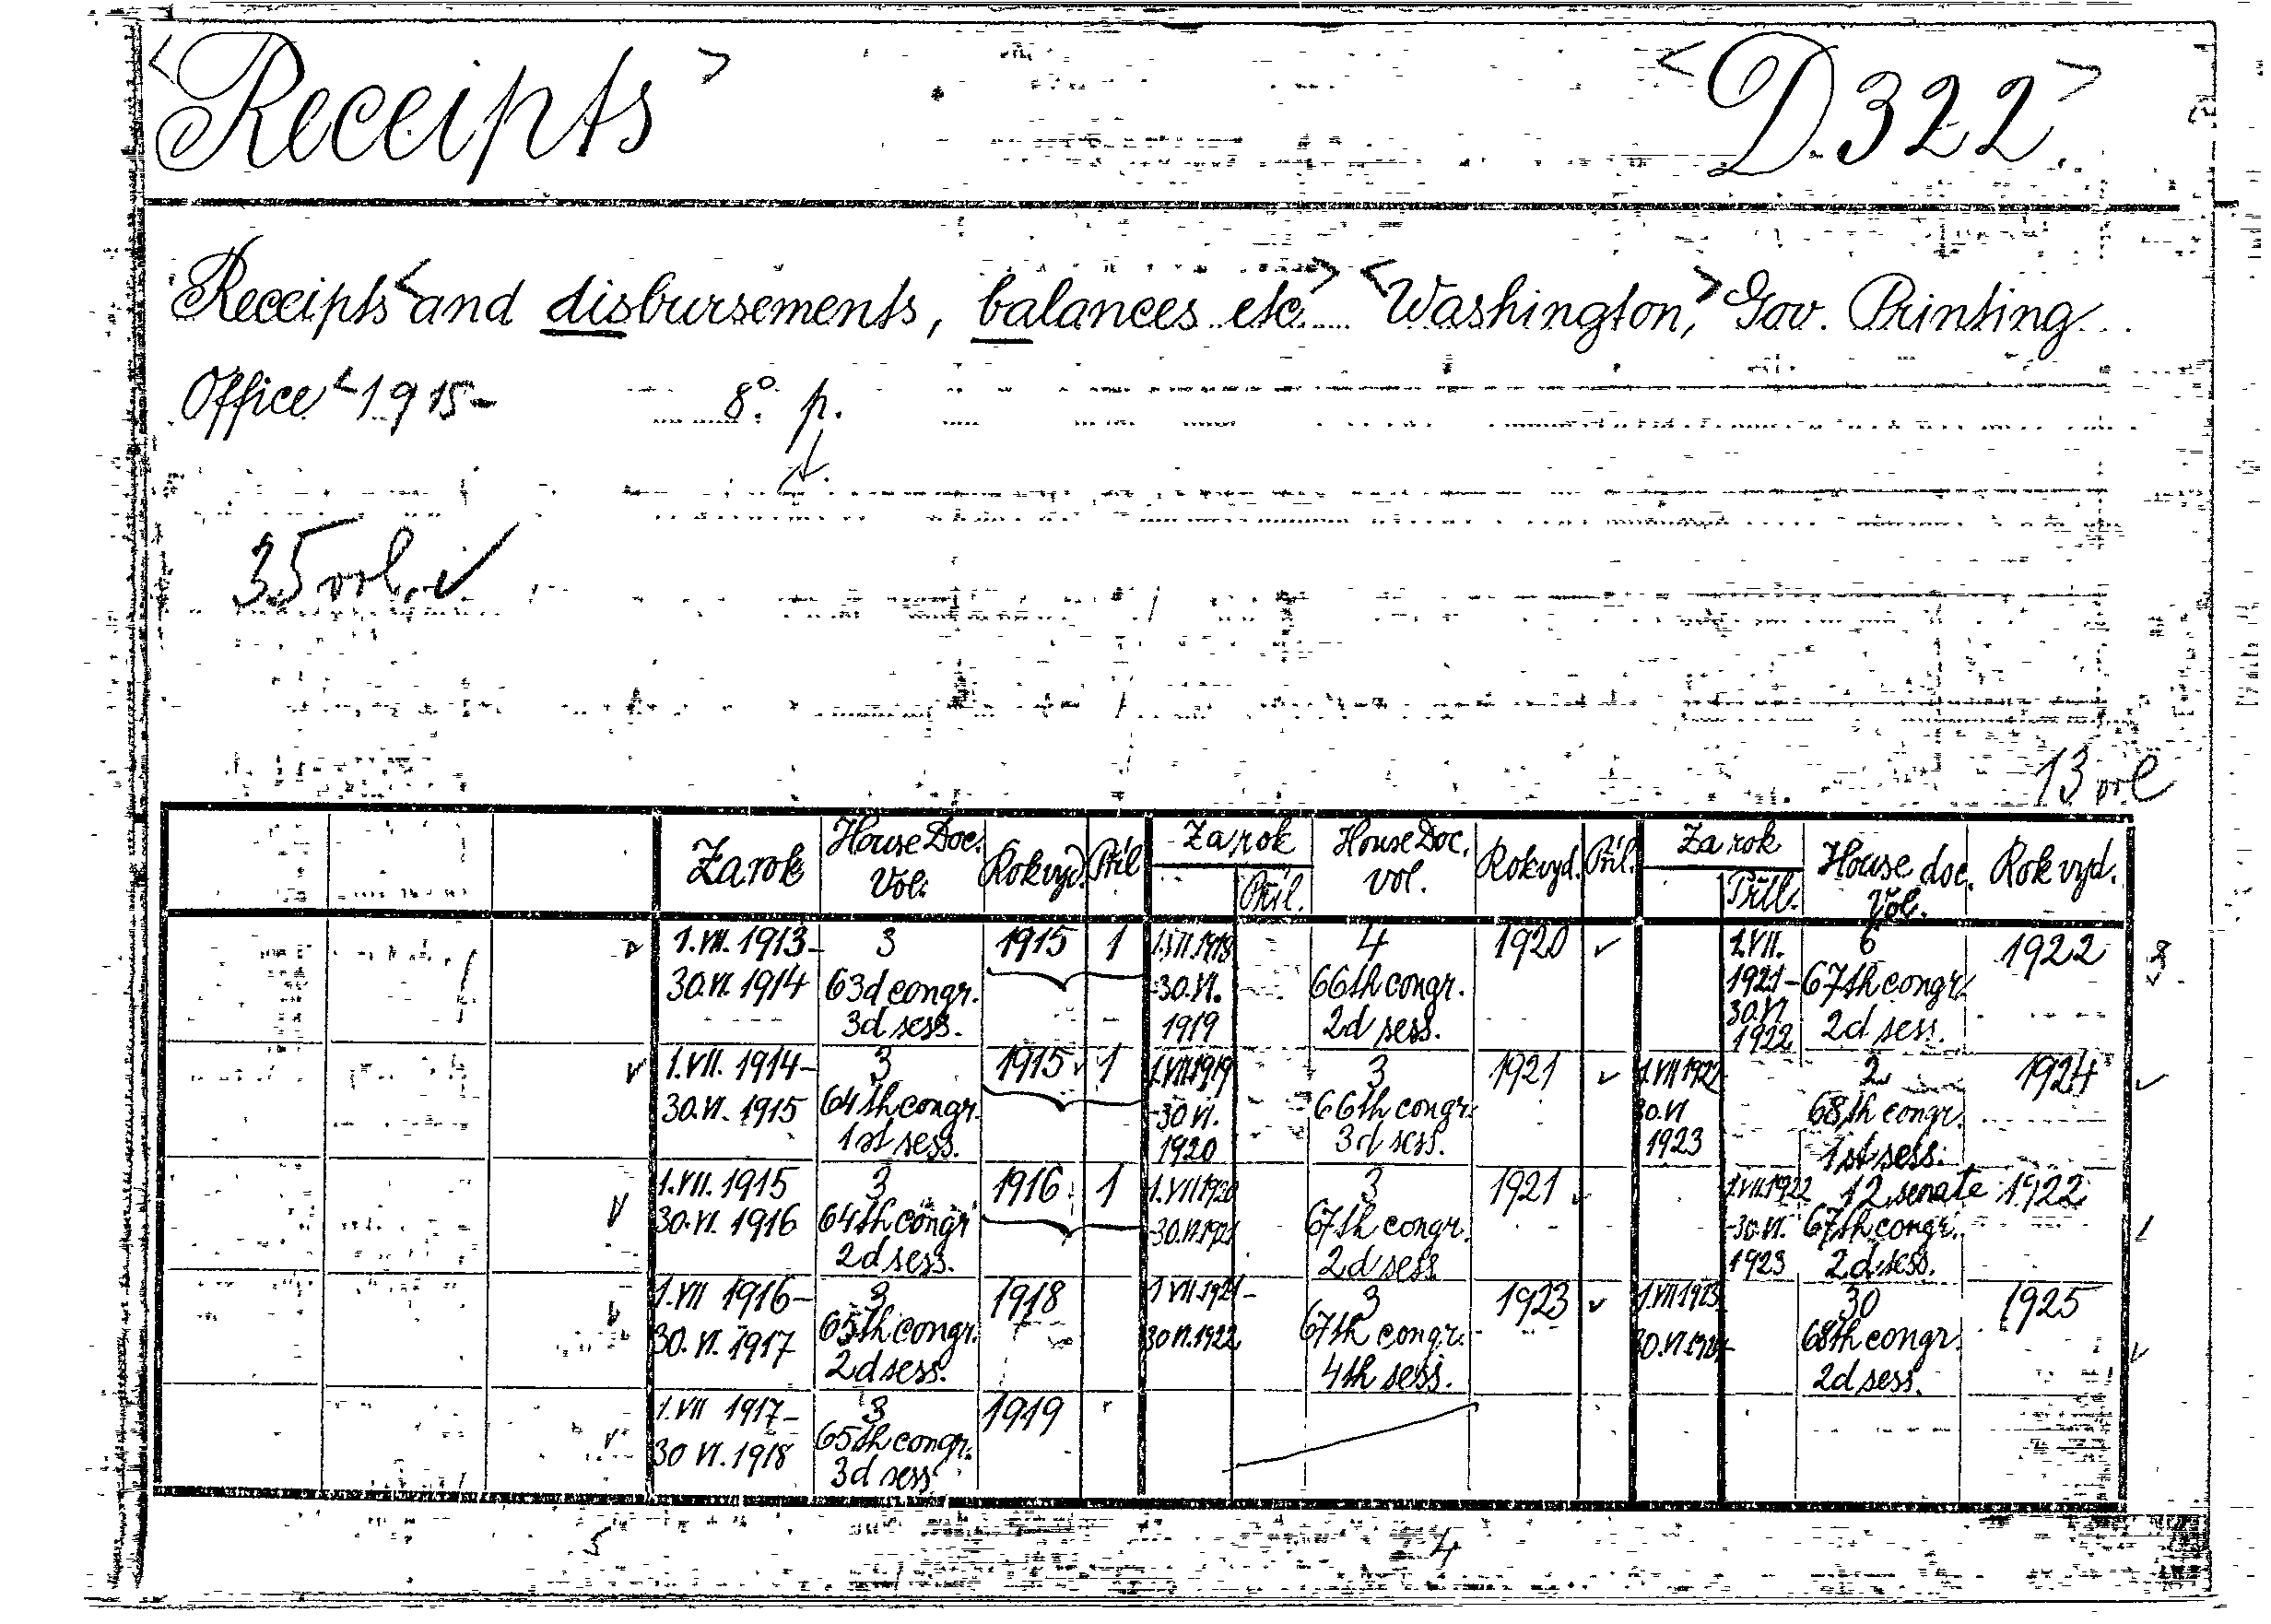 <Receipts> <D.322>
Receipts <and disbursements, balances etc> <Washington,> Gov. Printing
Office <1915- 8° p.
35 vol. ✓
13 vol
Za rok House Doc. Vol. Rok vyd. Příl Za rok Příl. House Doc. vol. Rok vyd. Příl. Za rok Příl. House doc. Vol. Rok vyd.
1.VII. 1913- 3 1915 1 1.VII.1918 4 1920 ✓ 1.VII. 6 1922
30.VI. 1914 63d congr. -30.VI. 66th congr. 1921- 67th congr.
3d sess. 1919 2d sess. 30.VI. 1922 2d sess.
✓ 1.VII. 1914- 3 1915 1 1.VII.1919 3 1921 ✓ 1.VII 1922 2 1924 ✓
30.VI. 1915 64th congr. -30 VI. 66th congr. 30.VI 68th congr.
1st sess. 1920 3d sess. 1923 1st sess.
✓ 1.VII. 1915 3 1916 1 1.VII 1920 3 1921 ✓ 1.VII.1922 12 senate 1922
30.VI. 1916 64th congr -30.VI.1921 67th congr. -30.VI. 67th congr.
2d sess. 2d sess 1923 2d sess.
✓ 1.VII 1916- 3 1918 1 VII.1921- 3 1923 ✓ 1.VII 1923 30 1925
30.VI. 1917 65th congr. 30 VI.1922 67th congr. 30.VI.1924 68th congr. ✓
2d sess. 4th sess. 2d sess.
1.VII 1917- 3 1919
30 VI. 1918 65th congr.
3d sess
5 4